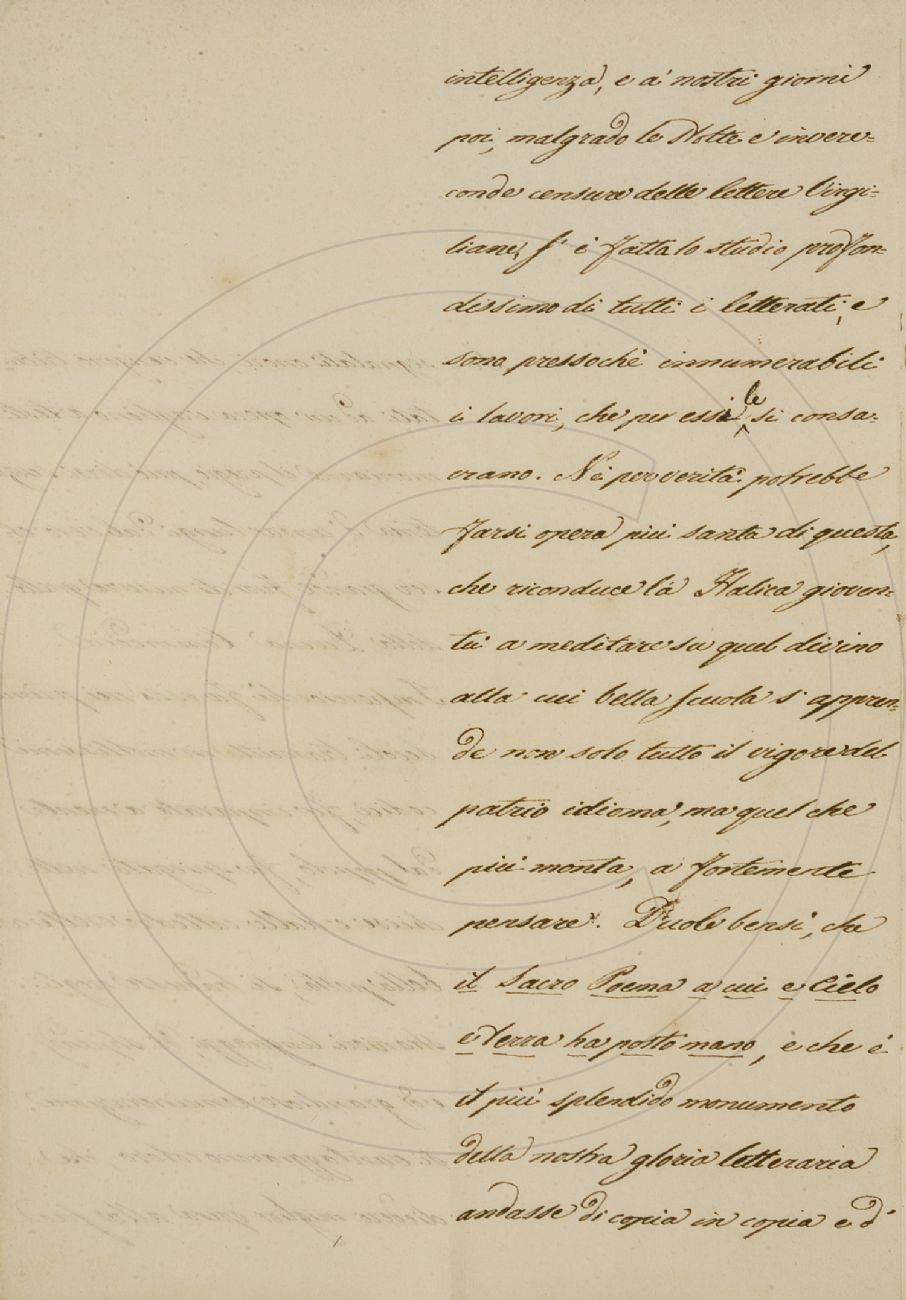 intelligenza, e a' nostri giorni
poi, malgrado le stolte e invere=
conde censure delle lettere Virgi=
liane, s' è fatta lo studio profon=
dissimo di tutti i letterati, e
sono pressochè innumerabili
i lavori, che per essi le si consa=
crano. Nè per verità potrebbe
farsi opera più santa di questa,
che riconduce la Italica gioven=
tù a meditare su quel divino
alla cui bella scuola s' appren=
de non solo tutto il vigore del
patrio idioma, ma quel che
più monta, a fortemente
pensare. Duole bensì, che
il Sacro Poema a cui e Cielo
e Terra ha posto mano, e che è
il più splendido monumento
della nostra gloria letteraria
andasse di copia in copia e d'